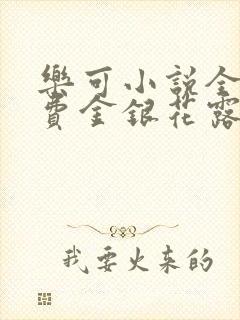 樂可小說全
費金銀花露
我要火来的